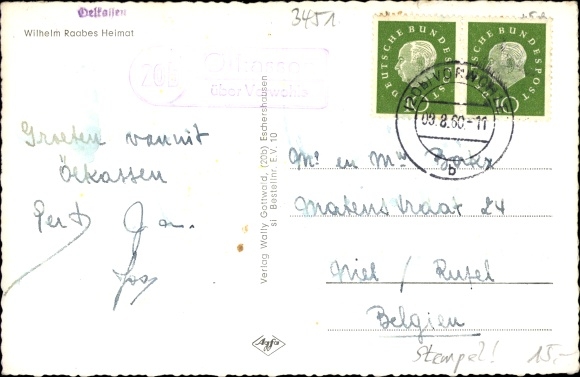 Oelkassen
3451
Wilhelm Raabes Heimat
20b
Ölkassen
über Vorwohle
DEUTSCHE BUNDESPOST
DEUTSCHE BUNDESPOST
10
10
VORWOHLE
09.8.60.-11
b
Groeten vanuit
Ölkassen
Gert Jan.
Jos
Verlag Wally Gottwald, (20b) Eschershausen
si Bestellnr. E.V. 10
Mr en Mw
Matenstraat 24
Niel / Rupel
Belgien
Agfa
Stempel! 15,-